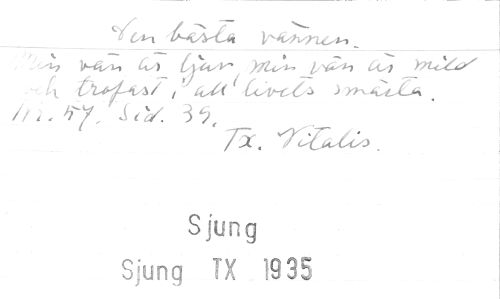 Den bästa vännen.
Min vän är ljuv, min vän är mild
och trofast i all livets smärta.
Nr. 57. Sid. 39.
Tx. Vitalis.
Sjung
Sjung TX 1935